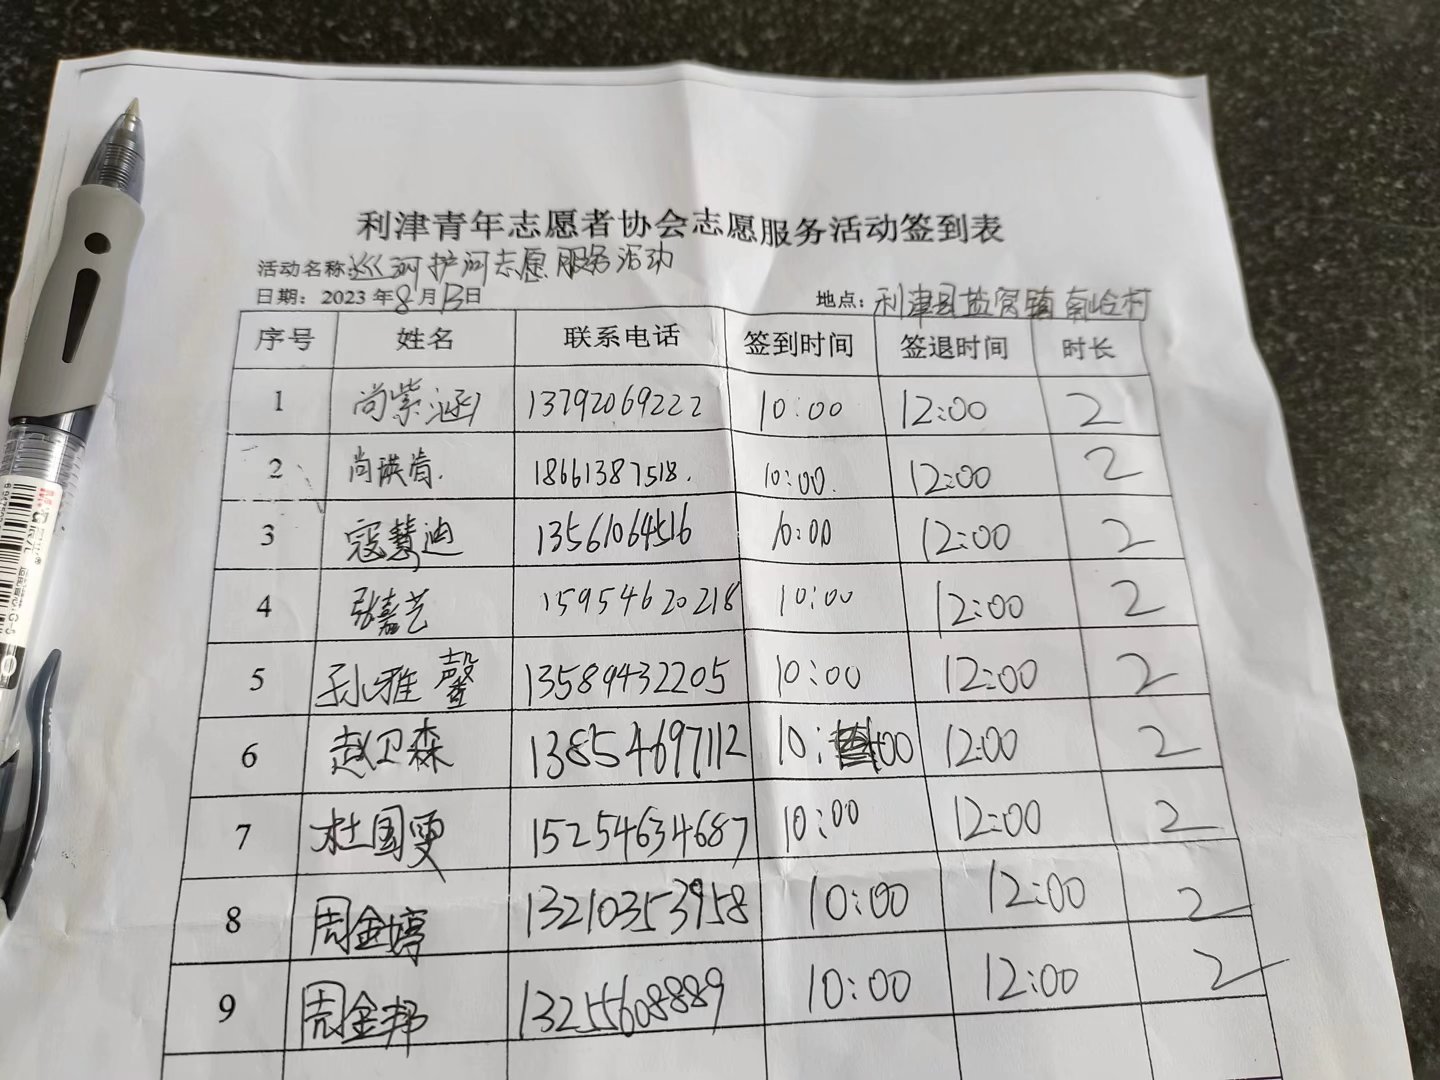 利津青年志愿者协会志愿服务活动签到表
活动名称巡河护河志愿服务活动
日期：2023年8月13日 地点：利津县盐窝镇南岭村
序号 姓名 联系电话 签到时间 签退时间 时长
1 尚紫涵 13792069222 10:00 12:00 2
2 尚琪清. 18661387518. 10:00. 12:00 2
3 寇慧迪 13561064516 10:00 12:00 2
4 张嘉艺 15954620218 10:00 12:00 2
5 孙雅馨 13589432205 10:00 12:00 2
6 赵卫森 13854697112 10:00 12:00 2
7 杜国雯 15254634687 10:00 12:00 2
8 周金婷 13210353958 10:00 12:00 2
9 周金邦 13255608889 10:00 12:00 2